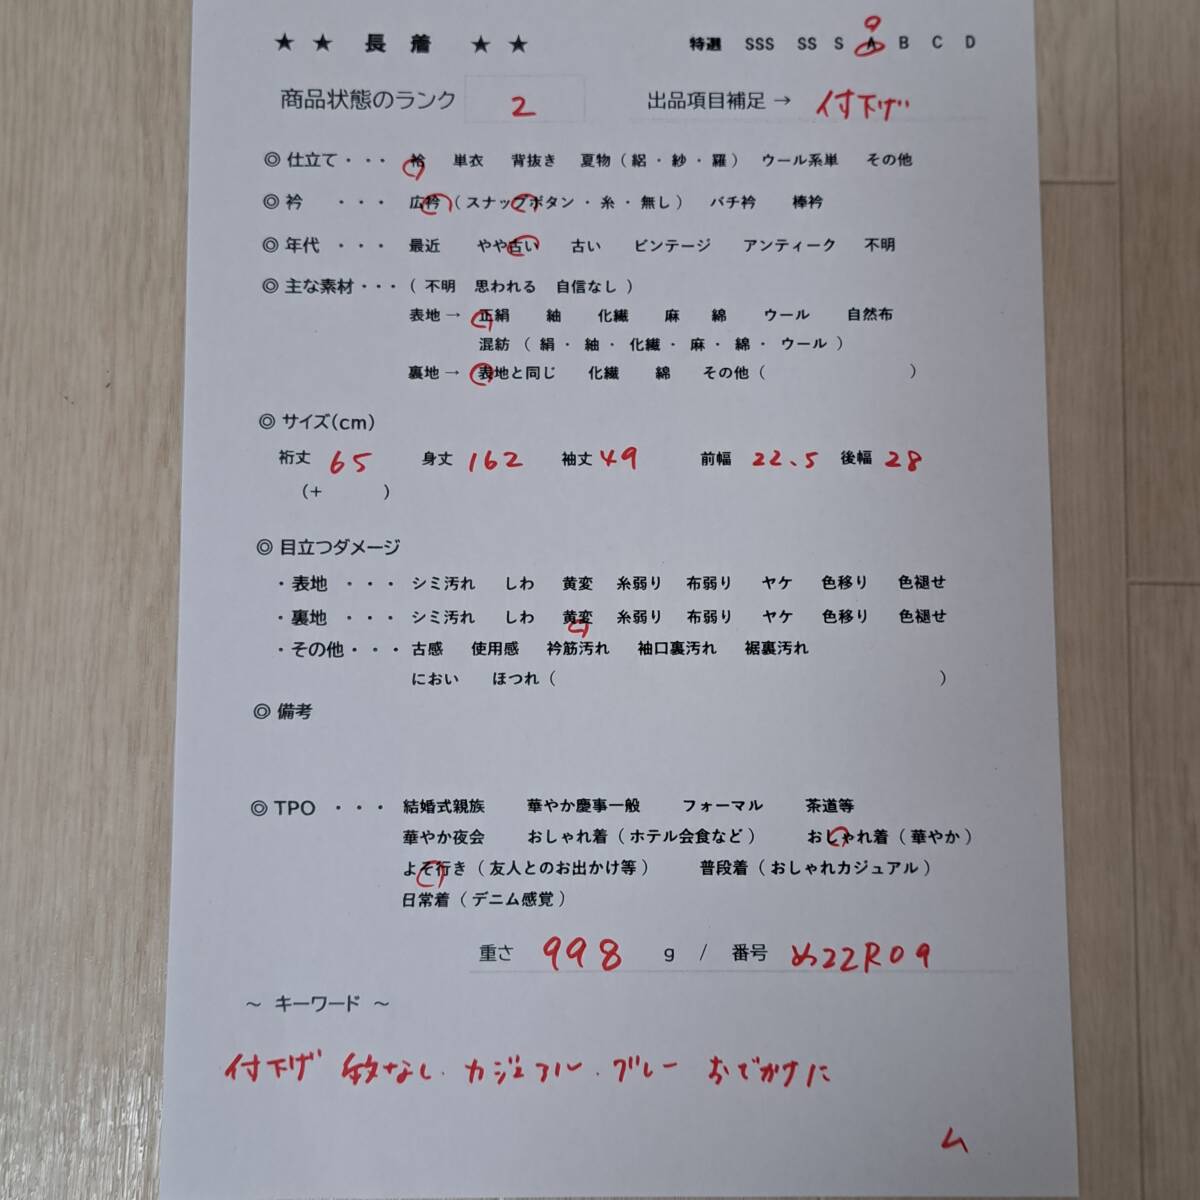 ★ ★ 長 着 ★ ★ 特選 SSS SS S A B C D
商品状態のランク 2 出品項目補足 → 付下げ
◎ 仕立て ・・・ 袷 単衣 背抜き 夏物（絽・紗・羅） ウール系単 その他
◎ 衿 ・・・ 広衿（スナップボタン・糸・無し） バチ衿 棒衿
◎ 年代 ・・・ 最近 やや古い 古い ビンテージ アンティーク 不明
◎ 主な素材・・・（不明 思われる 自信なし）
表地 → 正絹 紬 化繊 麻 綿 ウール 自然布
混紡（絹・紬・化繊・麻・綿・ウール）
裏地 → 表地と同じ 化繊 綿 その他（ ）
◎ サイズ(cm)
裄丈 65 身丈 162 袖丈 49 前幅 22.5 後幅 28
（+ ）
◎ 目立つダメージ
・表地 ・・・ シミ汚れ しわ 黄変 糸弱り 布弱り ヤケ 色移り 色褪せ
・裏地 ・・・ シミ汚れ しわ 黄変 糸弱り 布弱り ヤケ 色移り 色褪せ
・その他・・・ 古感 使用感 衿筋汚れ 袖口裏汚れ 裾裏汚れ
におい ほつれ（ ）
◎ 備考
◎ TPO ・・・ 結婚式親族 華やか慶事一般 フォーマル 茶道等
華やか夜会 おしゃれ着（ホテル会食など） おしゃれ着（華やか）
よそ行き（友人とのお出かけ等） 普段着（おしゃれカジュアル）
日常着（デニム感覚）
重さ 998 g / 番号 め22R09
～ キーワード ～
付下げ 紋なし. カジュアル. グレー おでかけに
ム